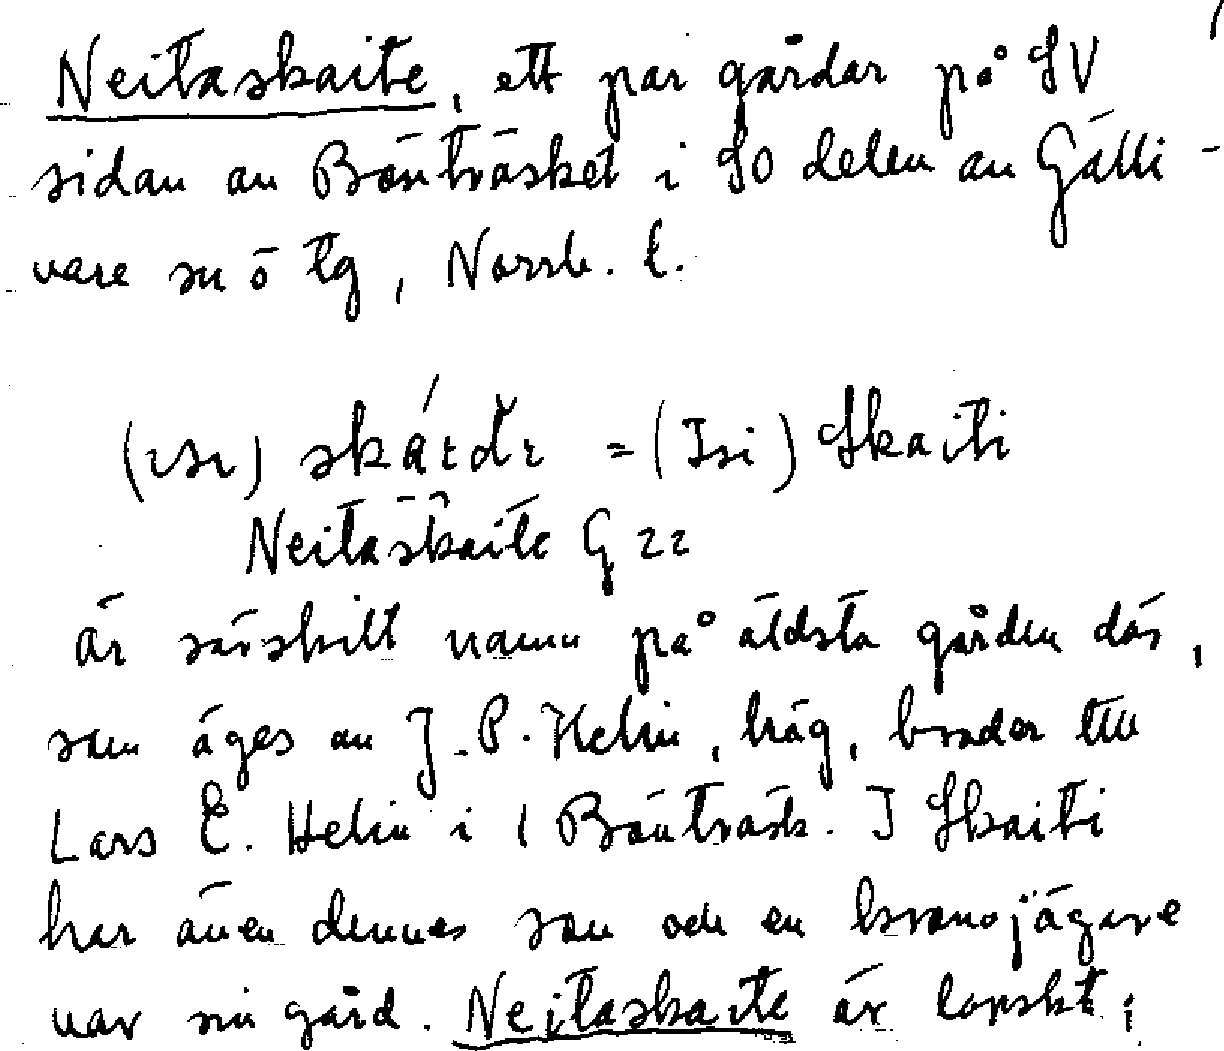 Neitaskaite, ett par gårdar på SV
sidan av Bönträsket i SO delen av Gälli-
vare sn o tg, Norrb. l.
(ɪsɪ) skáɪdɪ = (Isi) Skaiti
Neitaskaite G 22
är särskilt namn på äldsta gården där,
som äges av J. P. Helin, bräg, broder till
Lars E. Helin i Bönträsk. I Skaiti
har även dennes son och en kronojägare
var sin gård. Nejtaskaite är lapskt;